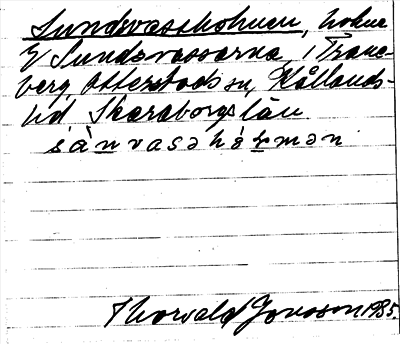 Sundsvassholmen, holme
V Sundsvassarna, i Trane-
berg, Otterstads sn, Kållands
hd, Skaraborgs län
sànvasəhɵ́lmən
Thorvald Jonsson 1935.